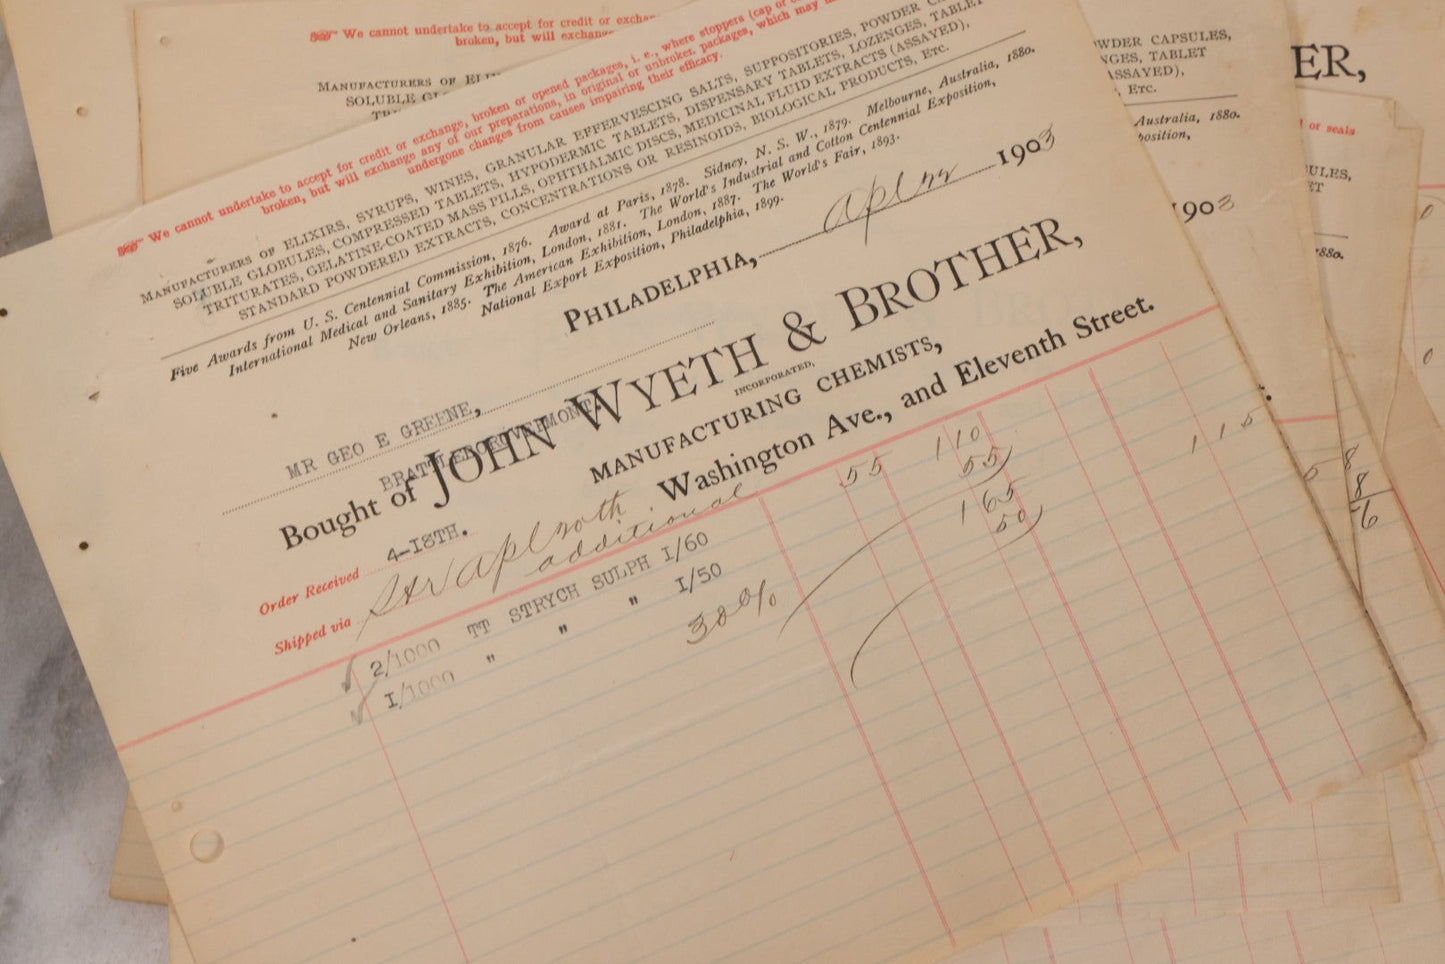 We cannot undertake to accept for credit or
broken, but will exchange
MANUFACTURERS OF
SOLUBLE
ER,
WDER CAPSULES,
TABLET
ASSAYED),
ETC.
Australia, 1880.
1903
or seals
1880.
We cannot undertake to accept for credit or exchange, broken or opened packages, i. e., where stoppers (cap or
broken, but will exchange any of our preparations, in original or unbroken packages, which may
undergone changes from causes impairing their efficacy.
MANUFACTURERS OF ELIXIRS, SYRUPS, WINES, GRANULAR EFFERVESCING SALTS, SUPPOSITORIES, POWDER
SOLUBLE GLOBULES, COMPRESSED TABLETS, HYPODERMIC TABLETS, DISPENSARY TABLETS, LOZENGES, TABLET
TRITURATES, GELATINE-COATED MASS PILLS, OPHTHALMIC DISCS, MEDICINAL FLUID EXTRACTS (ASSAYED),
STANDARD POWDERED EXTRACTS, CONCENTRATIONS OR RESINOIDS, BIOLOGICAL PRODUCTS, ETC.
Five Awards from U. S. Centennial Commission, 1876. Award at Paris, 1878. Sidney, N. S. W., 1879. Melbourne, Australia, 1880.
International Medical and Sanitary Exhibition, London, 1881. The World's Industrial and Cotton Centennial Exposition,
New Orleans, 1885. The American Exhibition, London, 1887. The World's Fair, 1893.
National Export Exposition, Philadelphia, 1899.
PHILADELPHIA, Apl 22 1903
MR GEO E GREENE,
BRATTLEBORO VERMONT.
Bought of JOHN WYETH & BROTHER,
INCORPORATED,
MANUFACTURING CHEMISTS,
Washington Ave., and Eleventh Street.
Order Received 4-18TH.
Shipped via Apl 20th
additional
2/1000 TT STRYCH SULPH 1/60 55 110
1/1000 " " " 1/50 55
30% 165
50
115